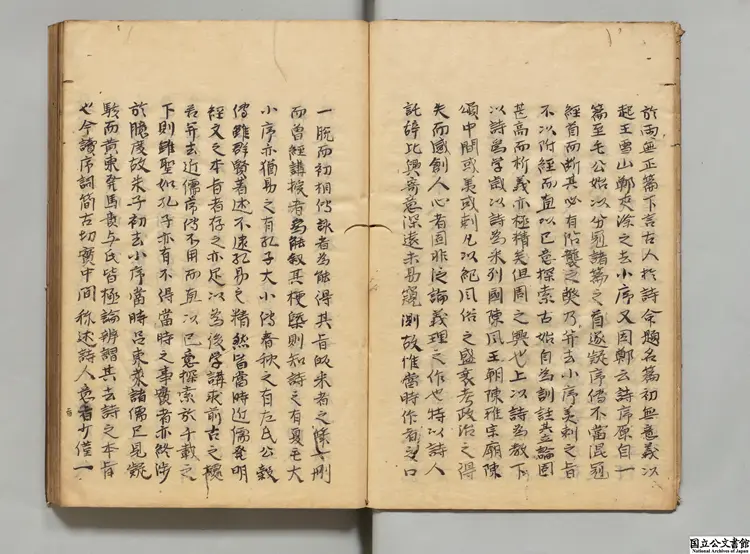 於雨無正篇下言古人於詩命題名篇初無意義以
起王雪山鄭夾漈之去小序又因鄭云詩序原自一
篇至毛公始以分冠諸篇之首遂疑序傳不當混冠
經首而断其必有附襲之 乃并去小序美刺之旨
不以附經而直以己意探索古始自為訓註其立論固
甚高而析義亦極精美但周之興也上以詩為教下
以詩為学歲以詩為 列國陳風王朝陳雅宗廟陳
頌中間或美或刺凡以紀風俗之盛衰考政治之得
失而感創人心者固非泛論義理之作也特以詩人
託辞比興寄意深遠未易窺測故惟當時作者之口
一脱而初相傳詠者為能得其旨 采者之 刪
而曽經講授者為能叙其梗槩則知詩之有夏毛大
小序亦猶易之有孔子大小傳春秋之有左氏公穀
傳雖群賢著述不逮孔易之精然皆當時近儒發明
經文之本旨者存之亦足以為後学講求前古之
若并去近儒序傳不用而直以己意探索於千載之
下則雖聖如孔子亦有不得當時之事實者亦終渉
於臆度故朱子初去小序當時呂東萊諸儒已見疑
駭而黄東發馬貴与氏皆極論辨謂其去詩之本旨
也今議序詞簡古切實中間称述詩人意者少僅一
国立公文書館
National Archives of Japan